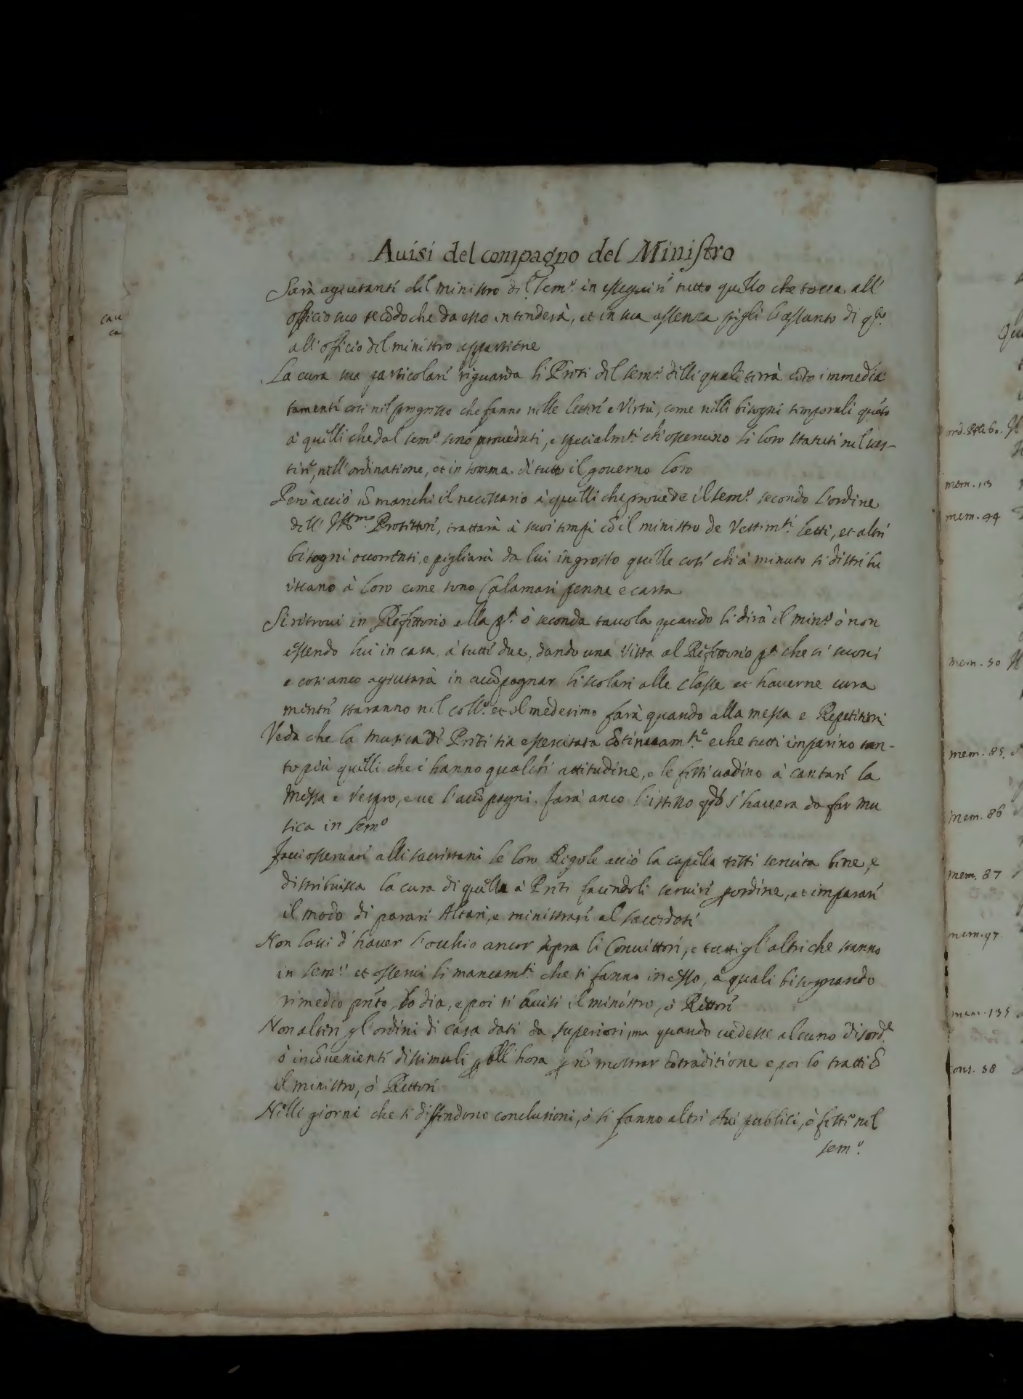 Avisi del compagno del Ministro
Sarà agiutante del ministro del Sem.º in esseguire tutto quello che tocca all'
officio suo secōdo che da esso intenderà, et in sua assenza pigli l'assunto di q.to
all'officio del ministro appartiene
La cura sua particolare riguarda li Preti del sem.º delli quali terrà cōto immedia
tamente così nel progresso che fanno nelle lettere e Virtù, come nelli bisogni temporali quāto
à quelli che dal sem.º sono proveduti, e specialmte ch'osservino li loro statuti nel ves-
tire, nell'ordinatione, et in somma di tutto il governo loro
Però acciò nō manchi il necessario à quelli che provede il sem.º secondo l'ordine
dell' Ill.mo Protettore, trattarà à suoi tempi cō il ministro de Vestim.ti letti, et altri
bisogni occorrenti, e pigliarà da lui in grosso quelle cose che à minuto si distribu
iscano à loro come sono Calamari penne e carta
Si ritrovi in Refettorio alla p.a ò seconda tavola quando li dirà il min.º ò non
essendo lui in casa à tutte due, dando una vista al Refettorio p.a che si suoni
e così anco agiutarà in accōpagnar li scolari alle classe et haverne cura
mentre staranno nel coll.º et il medesimo farà quando alla messa e Repetitioni
Veda che la musica di Preti sia essercitata cōtinuam.te e che tutti imparino tan-
to più quelli che c'hanno qualche attitudine, e le feste vadino à cantare la
Messa e Vespro, e ve l'accōpagni. farà anco l'istesso qdo s'havera da far mu
sica in sem.º
facci osservare alli sacristani le loro Regole acciò la capella resti servita bene, e
distribuisca la cura di quella à Preti facendoli servire p ordine, et imparare
il modo di parare Altari, e ministrare al sacerdote
Non lassi d'haver l'occhio ancor sopra li Convittori, e tutti gl'altri che stanno
in sem.º et osservi li mancamti che si fanno in esso, à quali bisognando
rimedio pnto, lo dia, e poi ti avvisi il ministro, ò Rettore
Non alteri gl'ordini di casa dati da superiori, ma quando vedesse alcuno disord.e
ò incōveniente dissimuli p all'hora p nō mostrar cōtraditione e poi lo tratti cō
il ministro, ò Rettore
Nelli giorni che si diffendono conclusioni, ò si fanno altri Atti publici, ò feste nel
sem.º
mem. 113
mem. 44
mem. 50
mem. 85
mem. 86
mem. 87
mem. 97
mem. 135
cons. 38